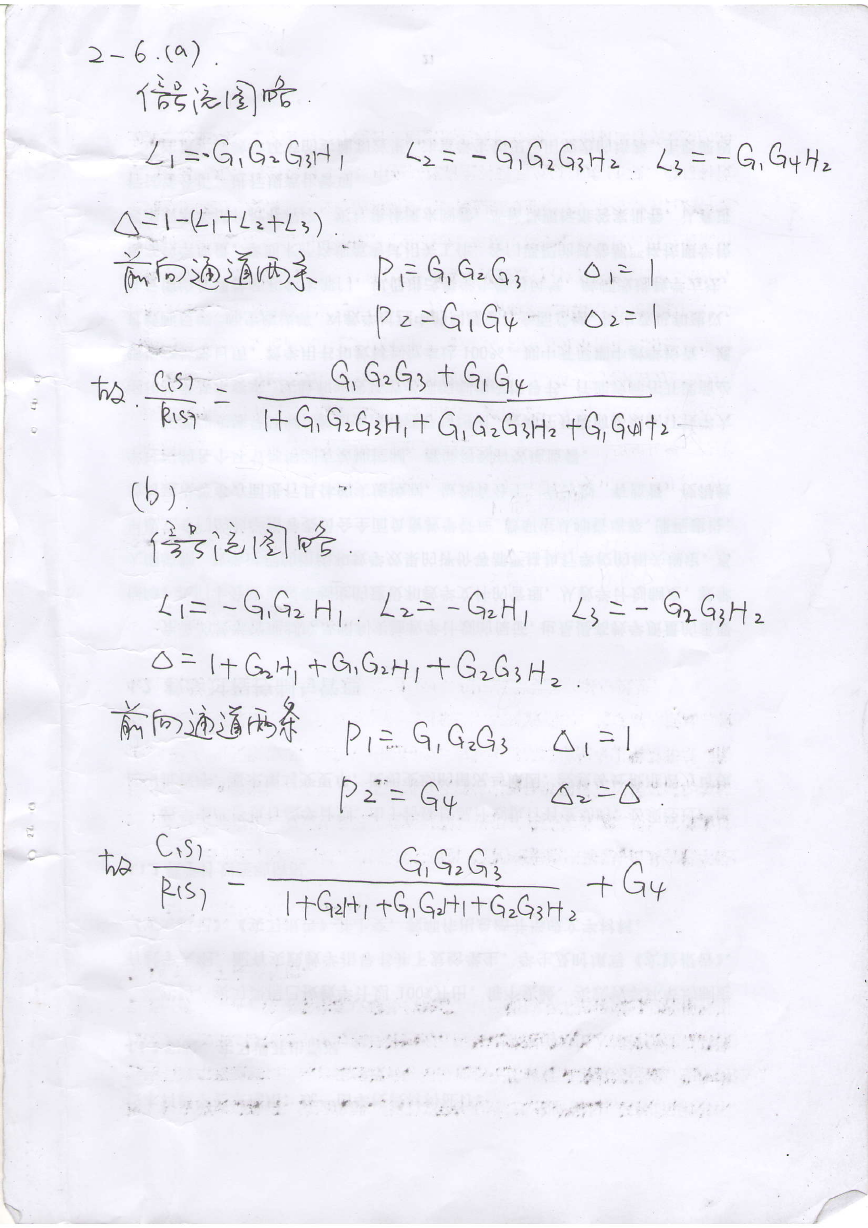 2-6.(a).
信号流图略.
L₁=-G₁G₂G₃H₁ L₂=-G₁G₂G₃H₂ L₃=-G₁G₄H₂
Δ=1-(L₁+L₂+L₃).
前向通道两条 P₁=G₁G₂G₃ Δ₁=1
P₂=G₁G₄ Δ₂=1
故 C(S)/R(S) = (G₁G₂G₃+G₁G₄)/(1+G₁G₂G₃H₁+G₁G₂G₃H₂+G₁G₄H₂)
(b).
信号流图略.
L₁=-G₁G₂H₁. L₂=-G₂H₁ L₃=-G₂G₃H₂
Δ=1+G₂H₁+G₁G₂H₁+G₂G₃H₂.
前向通道两条 P₁=G₁G₂G₃ Δ₁=1
P₂=G₄ Δ₂=Δ.
故 C(S)/R(S) = G₁G₂G₃/(1+G₂H₁+G₁G₂H₁+G₂G₃H₂) + G₄